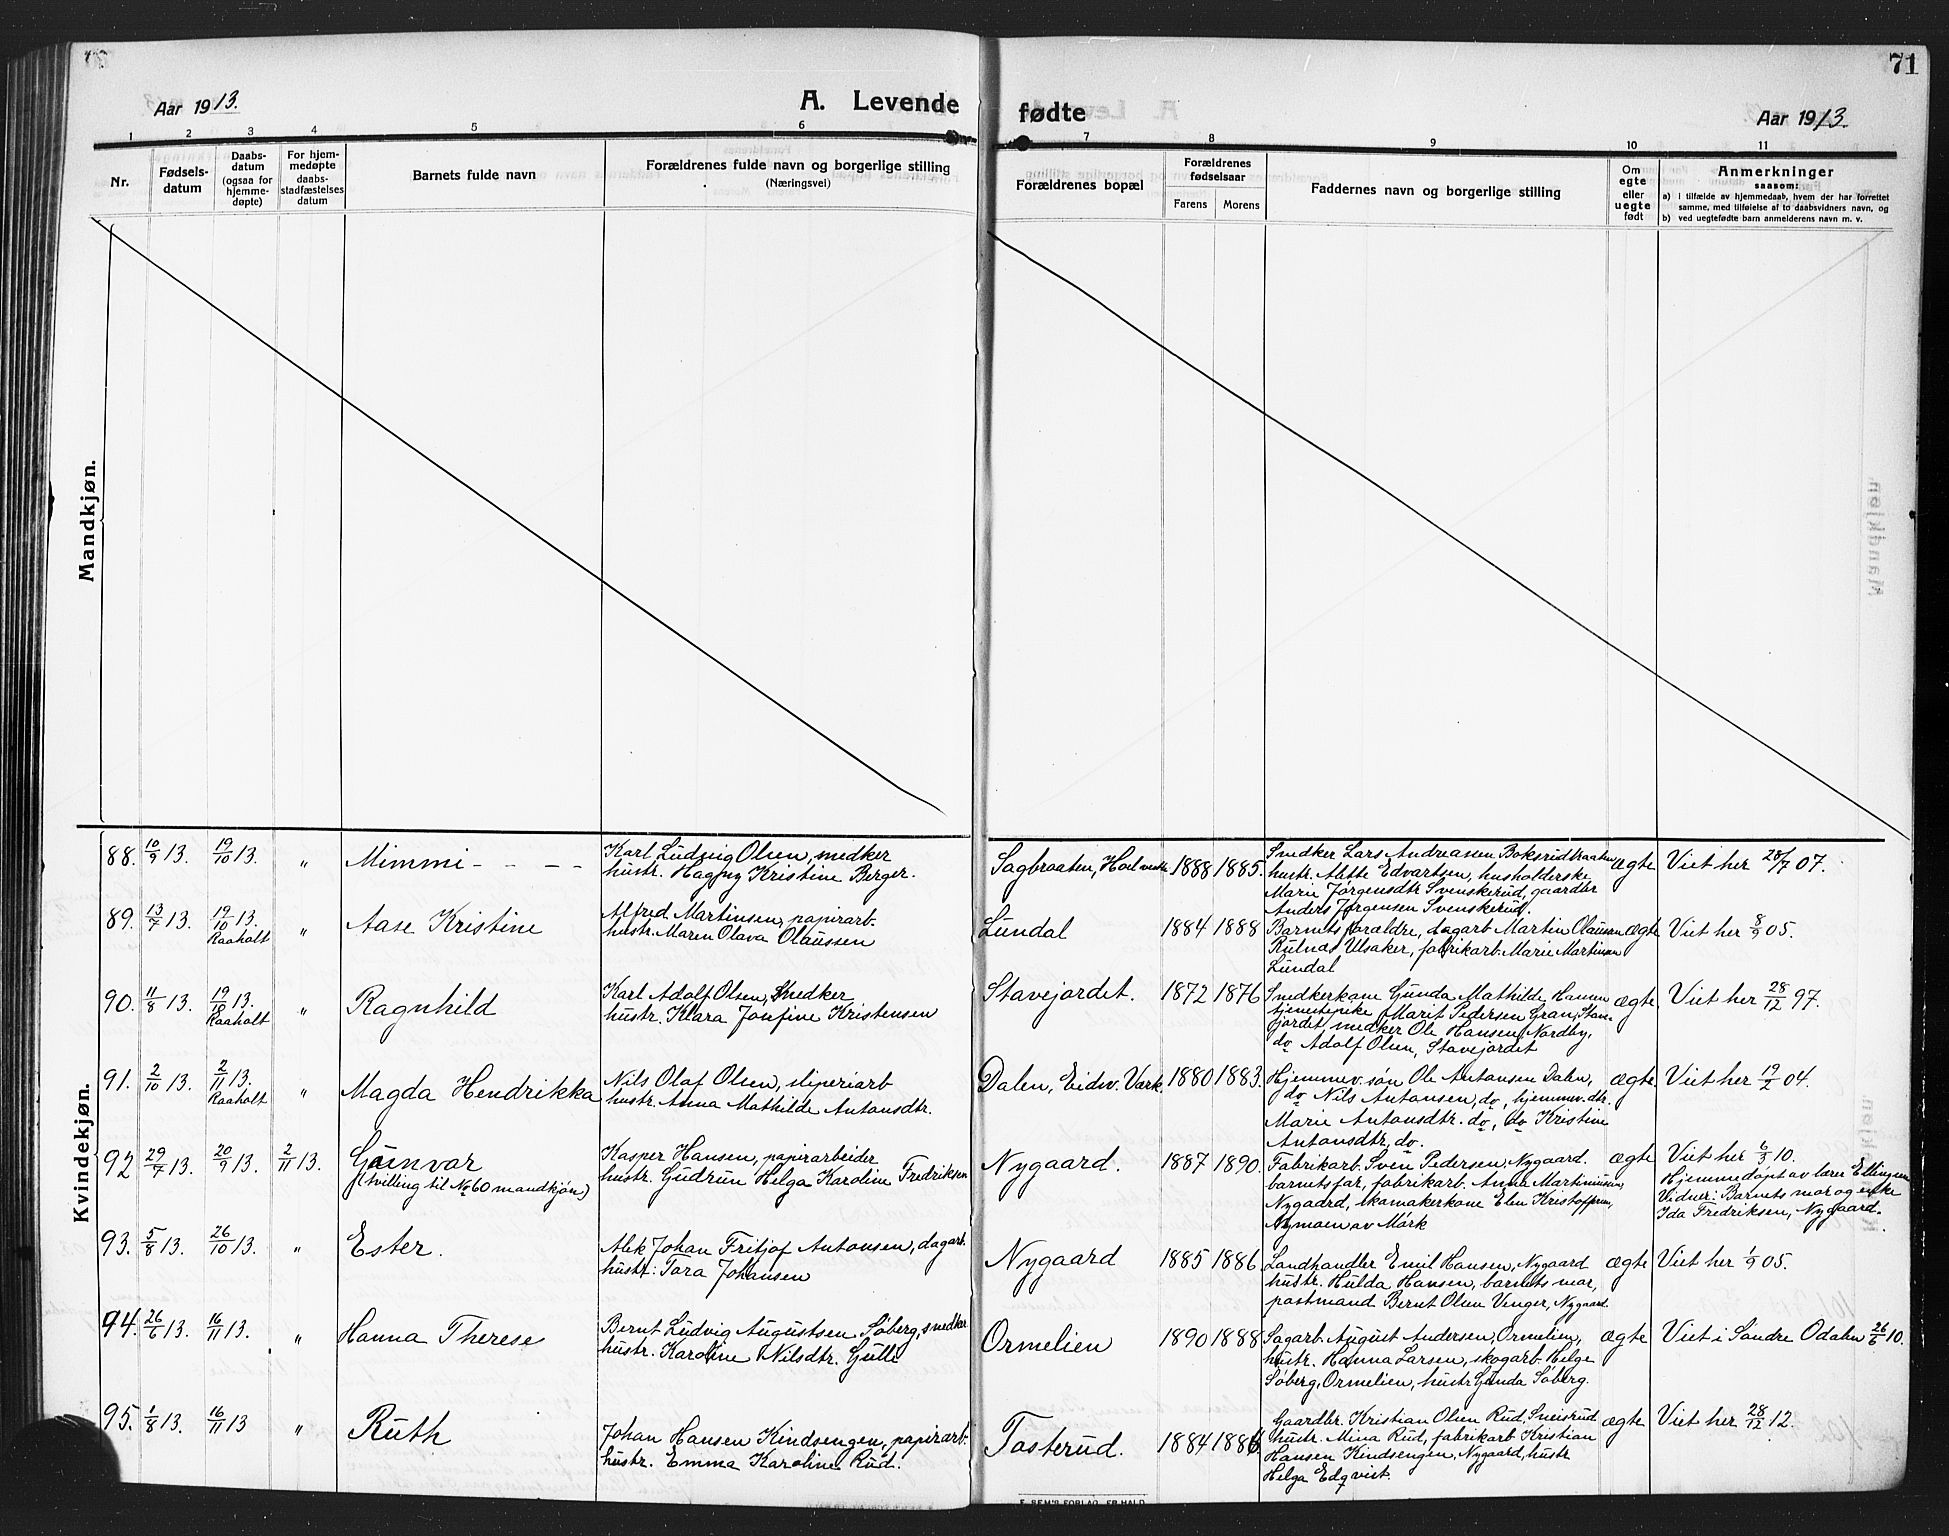 71
Aar 1913.
A. Levende fødte
Aar 1913.
1 2 3 4 5 6 7 8 9 10 11
Nr.
Fødsels-
datum
Daabs-
datum
(ogsaa for
hjemme-
døpte)
For hjem-
medøpte
daabs-
stadfæstelses
datum
Barnets fulde navn
Forældrenes fulde navn og borgerlige stilling
(Næringsvei)
Forældrenes bopæl
Forældrenes
fødselsaar
Farens Morens
Faddernes navn og borgerlige stilling
Om
egte
eller
uegte
født
Anmerkninger
saasom:
a) i tilfælde av hjemmedaab, hvem der har forrettet
samme, med tilføielse af to daabsvidners navn, og
b) ved uegtefødte barn anmelderens navn m. v.
Mandkjøn.
Kvindekjøn.
88. 10/9 13. 19/10 13. " Mimmi - - - -
Karl Ludvig Olsen, snedker
hustr. Hagny Kristine Berger.
Sagbraaten, 1888 1885.
Snedker Lars Andreasen Boksrudbraaten
hustr. Alette Edvartsen, husholderske
Marie Jørgensdtr Svenskerud, gaardbr
Anders Jørgensen Svenskerud.
ægte Viet her 28/7 07.
89. 13/7 13. 19/10 13. Raaholt " Aase Kristine
Alfred Martinsen, papirarb.
hustr. Maren Olava Olaussen
Lundal 1884 1888
Barnets forældre, dagarb. Martin Olausen
Rulnæs Ulsaker, fabrikarb. Marie Martinsen
Lundal
ægte Viet her 8/9 05.
90. 11/8 13. 19/10 13. Raaholt " Ragnhild
Karl Adolf Olsen, Snedker
hustr. Klara Josefine Kristensen
Stavejordet. 1872 1876
Snedkerkone Gunda Mathilde Hansen
tjenestepike Marit Pedersen Gran, Stave-
jordet snedker Ole Hansen Nordby,
do Adolf Olsen, Stavejordet
ægte Viet her 28/12 97.
91. 2/10 13. 2/11 13. Raaholt " Magda Hendrikka
Nils Olaf Olsen, sliperiarb
hustr. Anna Mathilde Antonsdtr.
Dalen, Eidsv. Værk. 1880 1883.
Hjemmev. søn Ole Antonsen Dalen,
do Nils Antonsen, do, hjemmev. dtr.
Marie Antonsdtr. do, do Kristine
Antonsdtr, do.
ægte Viet her 04.
92 29/7 13. 20/9 13. 2/11 13. Gunvor
(tvilling til No 60 mandkjøn)
Kasper Hansen, papirarbeider
hustr. Gudrun Helga Karoline Fredriksen
Nygaard. 1887 1890.
Fabrikarb. Sven Pedersen, Nygaard.
barnets far, fabrikarb. Anna Martinusen,
Nygaard, skomakerkone Elen Kristoffersen,
Nymoen av Mørk
ægte Viet her 6/3 10.
Hjemmedøpt av lærer Ellingsen
Vidner: Barnets mor og enke
Ida Fredriksen, Nygaard.
93. 5/8 13. 26/10 13. " Ester.
Alek Johan Fritjof Antonsen, dagarb.
hustr: Tora Johansen
Nygaard 1885 1886
Landhandler Emil Hansen, Nygaard
hustr. Hulda Hansen, barnets mor,
postmand Bernt Olsen Venger, Nygaard.
ægte Viet her 1/9 05.
94. 26/6 13. 16/11 13. " Hanna Therese
Bernt Ludvig Augustsen Søberg, snedker
hustr. Karoline Nilsdtr. Gulli
Ormelien 1890 1888
Sagarb. August Andersen, Ormelien,
hustr. Hanna Larsen, skogarb. Helge
Søberg, Ormelien, hustr Gunda Søberg.
ægte Viet i Søndre Odalen 26/6 10.
95. 1/8 13. 16/11 13 " Ruth
Johan Hansen Kindsengen, papirarb.
hustr. Emma Karoline Rud.
Tosterud. 1884
Gaardbr. Kristian Olsen Rud, Sneisrud
hustr. Mina Rud, fabrikarb. Kristian
Hansen Kindsengen, Nygaard, hustr
Helga Edqvist.
ægte Viet her 28/12 12.